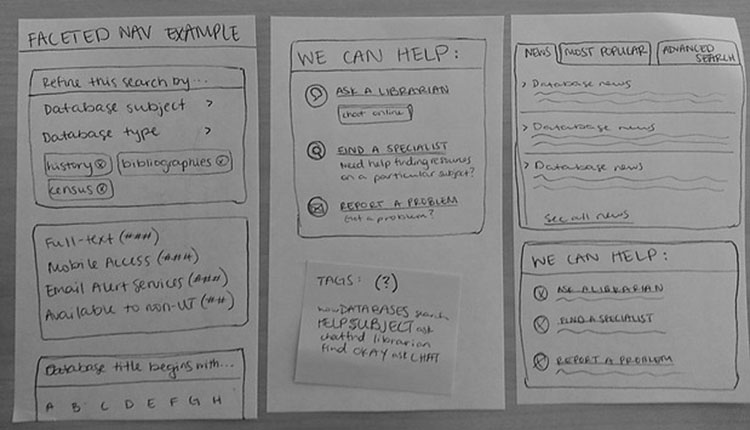 FACETED NAV EXAMPLE
Refine this search by...
Database subject >
Database type >
history ⓧ bibliographies ⓧ
census ⓧ
Full-text (###)
Mobile Access (###)
Email Alert Services (###)
Available to non-UT (##)
Database title begins with...
A B C D E F G H
WE CAN HELP:
ASK A LIBRARIAN
chat online
FIND A SPECIALIST
Need help finding resources
on a particular subject?
REPORT A PROBLEM
Got a problem?
TAGS: (?)
DATABASES search
HELP SUBJECT ask
chat find librarian
find OKAY ask CHAT
NEWS MOST POPULAR ADVANCED
SEARCH
> Database news
> Database news
> Database news
See all news
WE CAN HELP:
ASK A LIBRARIAN
FIND A SPECIALIST
REPORT A PROBLEM